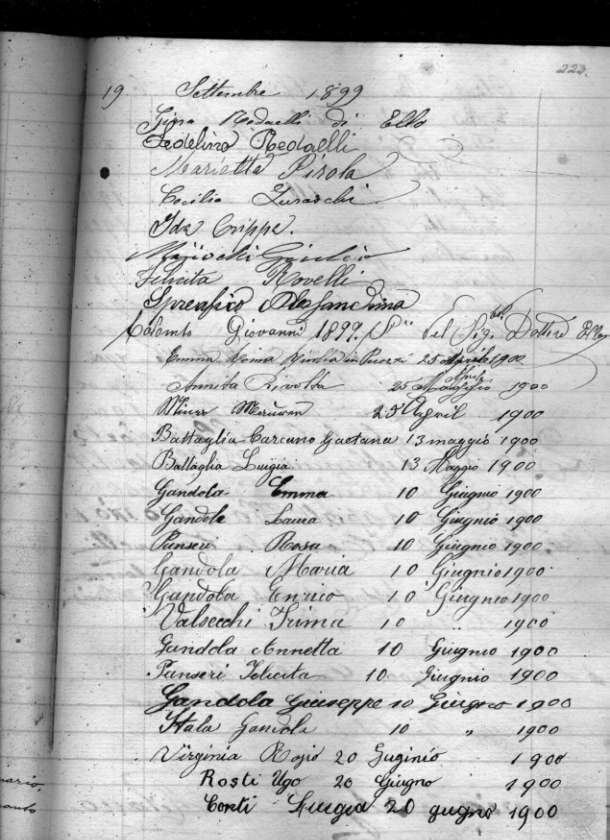 223.
19 Settembre 1899
Redaelli di Ello
Fedelina Redaelli
Marietta Pirola
Cecilia
Ida Crippa.
Felicita Rovelli
Spreafico Alessandrina
Colombo Giovanni 1899. Sig. Dottore
Emma 25 Aprile 1900
Annita Rivolta 25 Maggio Aprile 1900
25 April 1900
Battaglia Carcano Gaetana 13 maggio 1900
Battaglia Luigia 13 Maggio 1900
Gandola Emma 10 Giugnio 1900
Gandola Laura 10 Giugnio 1900
Panseri Rosa 10 Giugnio 1900
Gandola Maria 10 Giugnio 1900
Gandola Enrico 10 Giugnio 1900
Valsecchi Irima 10 " 1900
Gandola Annetta 10 Giugnio 1900
Panseri Felicita 10 Giugnio 1900
Gandola Giuseppe 10 Giugno 1900
Itala Gandola 10 " 1900
Virginia 20 Guginio 1900
Rosti Ugo 20 Giugno 1900
Conti Luigia 20 gugno 1900